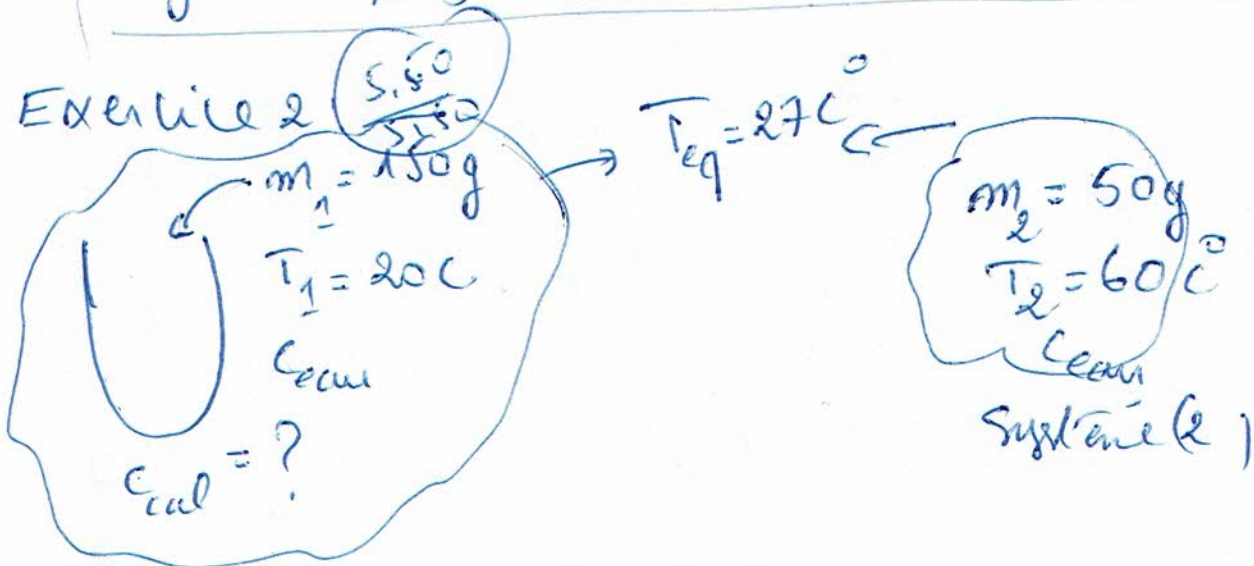 Exercice 2
5,50
5,50
m₁ = 150g
T₁ = 20C
Ceau
Ccal = ?
Teq = 27C°
m₂ = 50g
T₂ = 60C°
Ceau
Système (2)